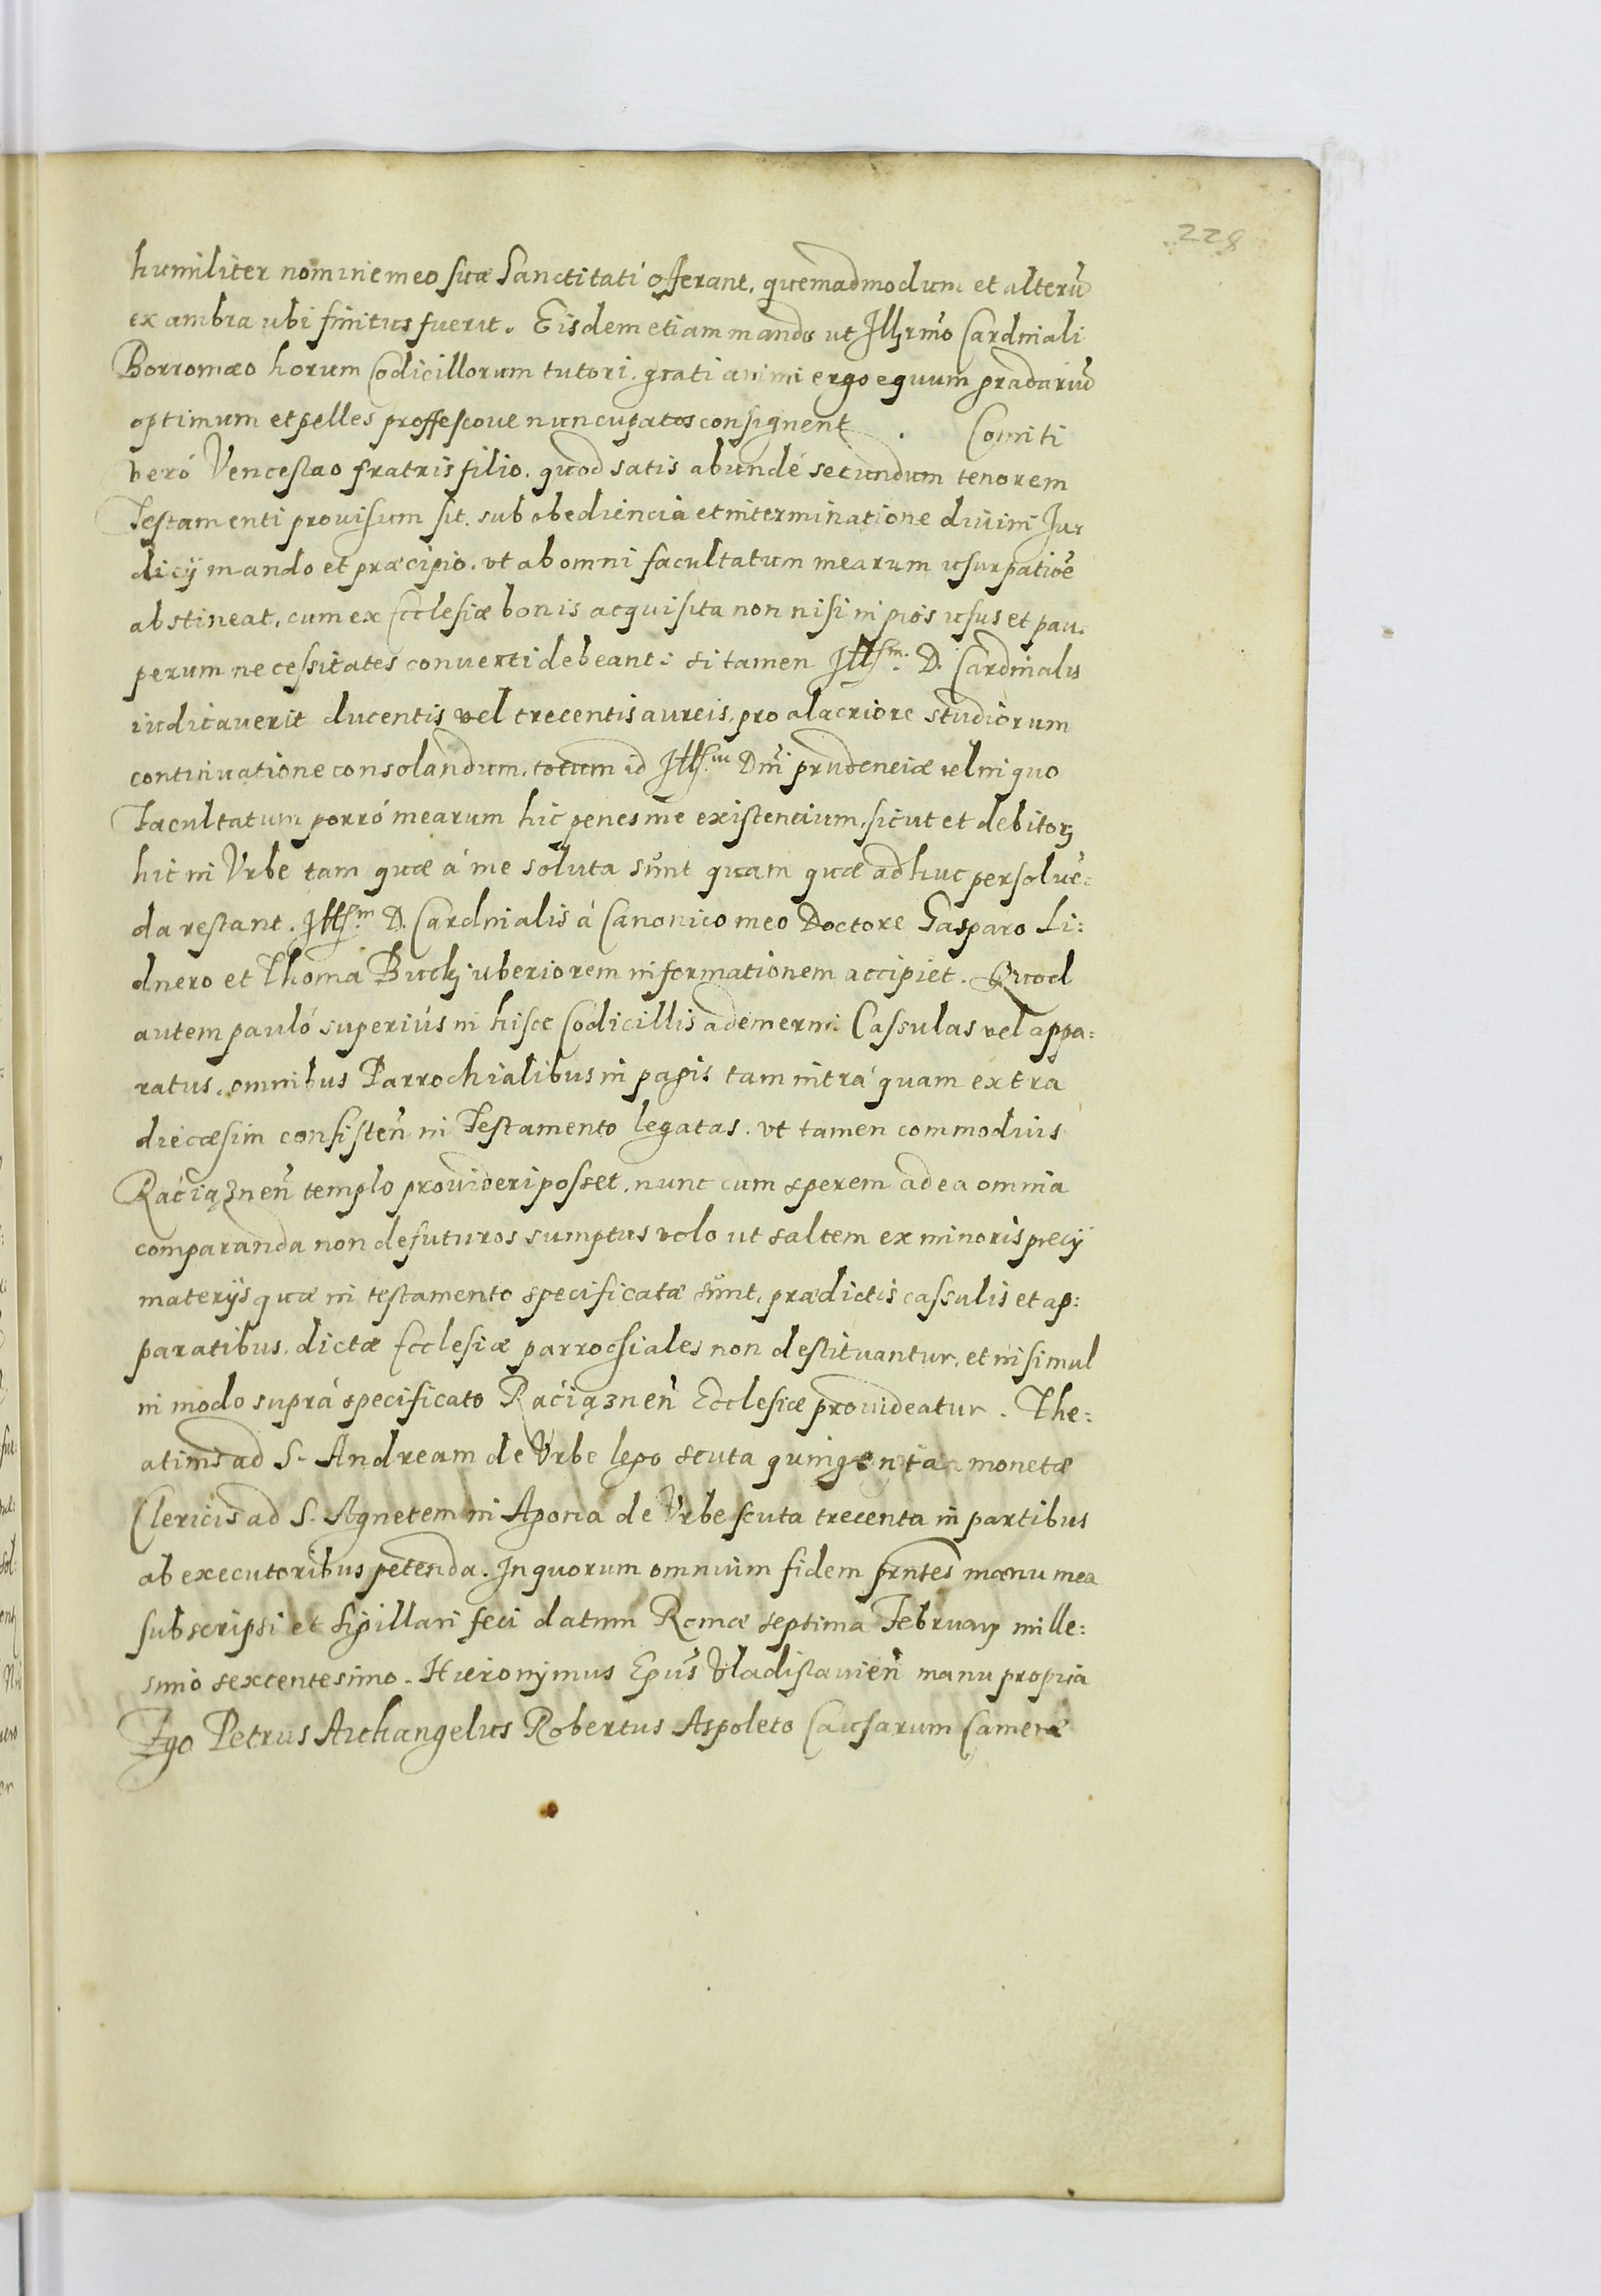 228
humiliter nomine meo suæ Sanctitati offerant, quemadmodum et alterũ
ex ambra ubi finitus fuerit. Eisdem etiam mando ut Illrmo Cardinali
Borromæo horum Codicillorum tutori, grati animi ergo equum gradariũ
optimum et pelles proffescoue nuncupatos consignent . Comiti
veró Venceslao fratris filio, quod satis abundé secundum tenorem
Testamenti prouisum sit, sub obediencia et interminatione diuini Ju
dicij mando et præcipio, ut ab omni facultatum mearum usurpatiõe
abstineat, cum ex Ecclesiæ bonis acquisita non nisi in pios usus et pau.
perum necessitates conuerti debeant: si tamen Illsm. D. Cardinalis
iudicaverit ducentis vel trecentis aureis, pro alacriore studiorum
continuatione consolandum, totum id Illsm Dni prudenciæ relinquo
Facultatum porró mearum hic penes me existencium, sicut et debitorz
hic in Vrbe tam quæ á me soluta sunt quam quæ adhuc persoluẽ:
da restant. Illsm. D. Cardinalis á Canonico meo Doctore Gasparo Li:
dnero et Thoma Buckz uberiorem informationem accipiet. Quod
autem pauló superiús in hisce Codicillis ademermi Cassulas vel appa:
ratus, omnibus Parrochialibus in pagis tam intrá quam extra
diecæsim consisten̄ in Testamento legatas, ut tamen commodius
Raciąznen̄ templo provideri posset, nunc cum sperem ad ea omnia
comparanda non defuturos sumptus volo ut saltem ex minoris precij
materijs quæ in testamento specificatæ sunt, prædictis cassulis et ap:
paratibus, dictæ Ecclesiæ parrochiales non destituantur, et nisimul
in modo suprá specificato Raciąznen̄ Ecclesiæ prouideatur. The:
atinis ad S. Andream de Vrbe lego scuta quingenta monetæ
Clericis ad S. Agnetem in Agona de Vrbe scuta trecenta in partibus
ab executoribus petenda. In quorum omnium fidem prntes manu mea
subscripsi et sigillari feci datum Romæ septima Februarij mille:
simo sexcentesimo. Hieronymus Epus Vladislauien̄ manu propria
Ego Petrus Archangelus Robertus Aspoleto Causarum Cameræ